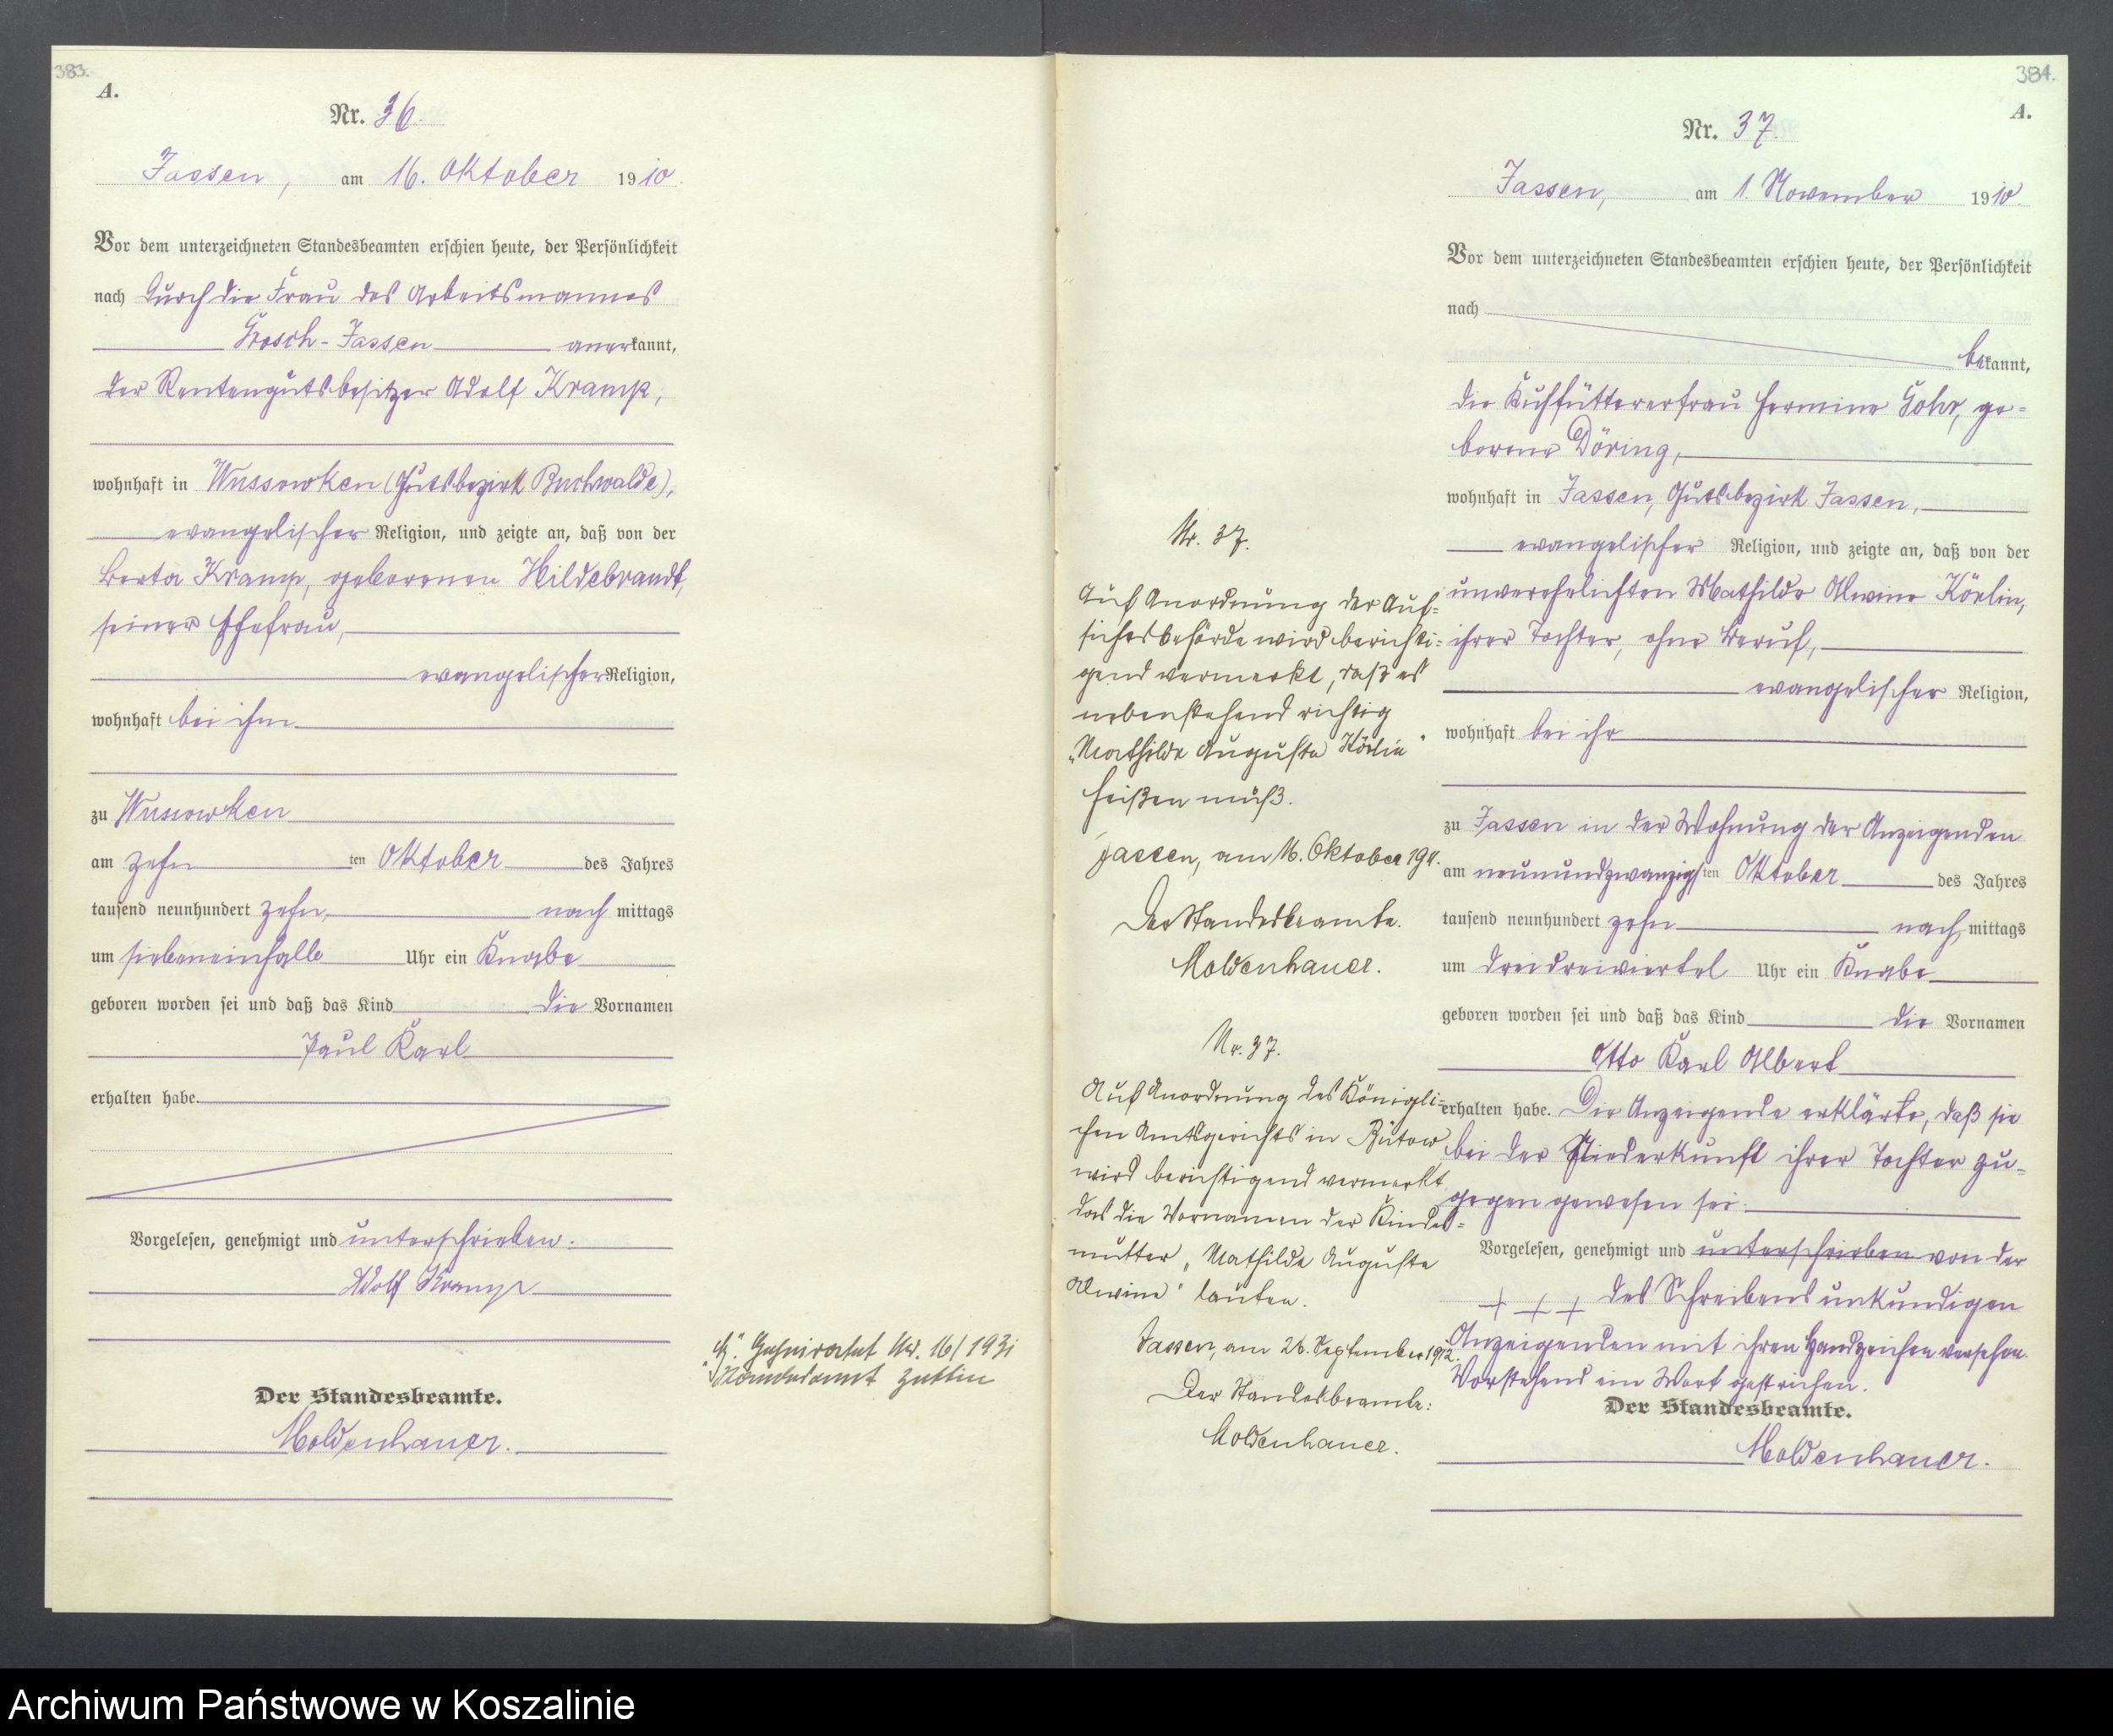 383.
A.
Nr. 36.
Jassen, am 16. Oktober 1910.
Vor dem unterzeichneten Standesbeamten erschien heute, der Persönlichkeit
nach durch die Frau des Arbeitsmannes
Grosch-Jassen anerkannt,
der Rentengutsbesitzer Adolf Kramp,
wohnhaft in Wussowken (Gutsbezirk Buchwalde),
evangelischer Religion, und zeigte an, daß von der
Berta Kramp, geborenen Hildebrandt,
seiner Ehefrau,
evangelischer Religion,
wohnhaft bei ihm
zu Wussowken
am zehn ten Oktober des Jahres
tausend neunhundert zehn nach mittags
um siebeneinhalb Uhr ein Knabe
geboren worden sei und daß das Kind die Vornamen
Paul Karl
erhalten habe.
Vorgelesen, genehmigt und unterschrieben.
Adolf Kramp
Der Standesbeamte.
Moldenhauer.
Nr. 16/193
Zettin
384.
A.
Nr. 37.
Jassen, am 1. November 1910.
Vor dem unterzeichneten Standesbeamten erschien heute, der Persönlichkeit
nach
bekannt,
die Kuhfüttererfrau Hermine Gohr, ge-
borene Döring,
wohnhaft in Jassen, Gutsbezirk Jassen,
evangelischer Religion, und zeigte an, daß von der
unverehelichten Mathilde Alwine Körlin,
ihrer Tochter, ohne Beruf,
evangelischer Religion,
wohnhaft bei ihr
zu Jassen in der Wohnung der Anzeigenden
am neunundzwanzigsten Oktober des Jahres
tausend neunhundert zehn nach mittags
um dreidreiviertel Uhr ein Knabe
geboren worden sei und daß das Kind die Vornamen
Otto Karl Albert
erhalten habe. Die Anzeigende erklärte, daß sie
bei der Niederkunft ihrer Tochter zu-
gegen gewesen sei.
Vorgelesen, genehmigt und unterschrieben von der
+ + + des Schreibens unkundigen
Anzeigenden mit ihren Handzeichen versehen.
Vorstehend ein Wort gestrichen.
Der Standesbeamte.
Moldenhauer.
Nr. 37.
Auf Anordnung der Auf-
sichtsbehörde wird berichti-
gend vermerkt, daß es
nebenstehend richtig
"Mathilde Auguste Körlin"
heißen muß.
Jassen, am 16. Oktober 1911.
Der Standesbeamte.
Moldenhauer.
Nr. 37.
Auf Anordnung des Königli-
chen Amtsgerichts in Bütow
wird berichtigend vermerkt
das die Vornamen der Kindes-
mutter "Mathilde Auguste
Alwine" lauten.
Jassen, am 26. September 1912.
Der Standesbeamte:
Moldenhauer.
Archiwum Państwowe w Koszalinie